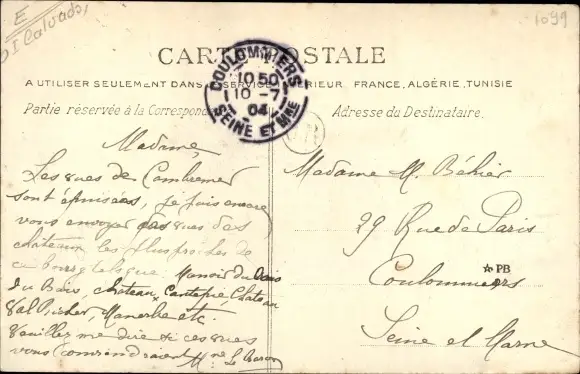 E
DI Calvados
1099
CARTE POSTALE
A UTILISER SEULEMENT DANS SERVICE INTÉRIEUR FRANCE, ALGÉRIE, TUNISIE
COULOMMIERS
10 50
10 -7
04
SEINE ET MNE
Partie réservée à la Correspond
Adresse du Destinataire.
OR
Madame,
Les vues de Cambremer
sont épuisées, je puis encore
vous envoyer des vues des
châteaux les plus proches de
ce bourg tels que Manoir du
du Bais, château, Canteptie Château
Val Richer, Manerbe etc.
Veuillez me dire si ces vues
vous conviendraient Mme Le Baron
Madame M. Béhier
29 Rue de Paris
Coulommiers
PB
Seine et Marne